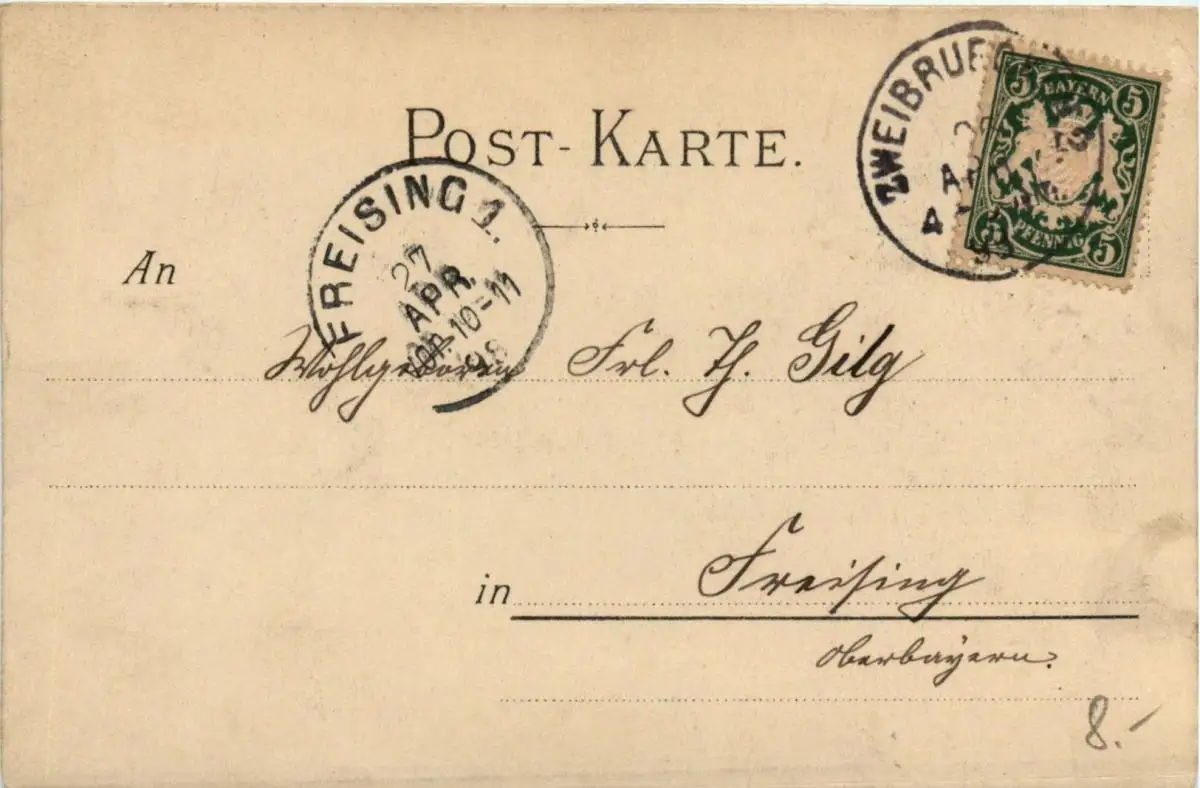 POST-KARTE.
ZWEIBRUE
APR
4
5 BAYERN 5
PFENNIG 5
FREISING 1.
27
APR.
10-11
98
An
Wohlgeboren Frl. Th. Gilg
in Freising
Oberbayern.
8.-